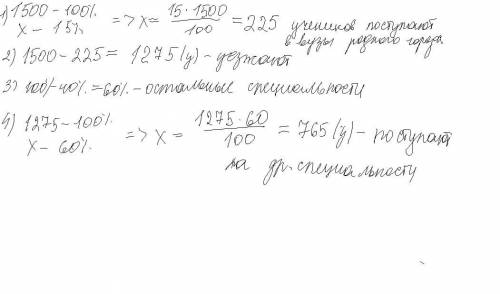 1) 1500 - 100% => x = 15·1500/100 = 225 учеников поступают
x - 15% в вузы родного города
2) 1500 - 225 = 1275 (у) - уезжают
3) 100% - 40% = 60% - остальные специальности
4) 1275 - 100% => x = 1275·60/100 = 765 (у) - поступают
x - 60% на др. специальность